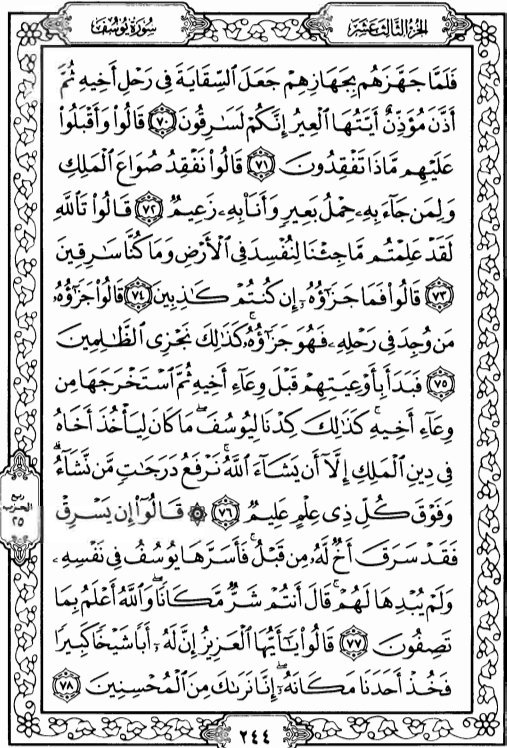 الجزء الثالث عشر
سورة يوسف
فَلَمَّا جَهَّزَهُم بِجَهَازِهِمْ جَعَلَ ٱلسِّقَايَةَ فِى رَحْلِ أَخِيهِ ثُمَّ
أَذَّنَ مُؤَذِّنٌ أَيَّتُهَا ٱلْعِيرُ إِنَّكُمْ لَسَٰرِقُونَ ٧٠ قَالُوا۟ وَأَقْبَلُوا۟
عَلَيْهِم مَّاذَا تَفْقِدُونَ ٧١ قَالُوا۟ نَفْقِدُ صُوَاعَ ٱلْمَلِكِ
وَلِمَن جَآءَ بِهِۦ حِمْلُ بَعِيرٍ وَأَنَا۠ بِهِۦ زَعِيمٌ ٧٢ قَالُوا۟ تَٱللَّهِ
لَقَدْ عَلِمْتُم مَّا جِئْنَا لِنُفْسِدَ فِى ٱلْأَرْضِ وَمَا كُنَّا سَٰرِقِينَ
٧٣ قَالُوا۟ فَمَا جَزَٰٓؤُهُۥٓ إِن كُنتُمْ كَٰذِبِينَ ٧٤ قَالُوا۟ جَزَٰٓؤُهُۥ
مَن وُجِدَ فِى رَحْلِهِۦ فَهُوَ جَزَٰٓؤُهُۥ ۚ كَذَٰلِكَ نَجْزِى ٱلظَّٰلِمِينَ
٧٥ فَبَدَأَ بِأَوْعِيَتِهِمْ قَبْلَ وِعَآءِ أَخِيهِ ثُمَّ ٱسْتَخْرَجَهَا مِن
وِعَآءِ أَخِيهِ ۚ كَذَٰلِكَ كِدْنَا لِيُوسُفَ ۖ مَا كَانَ لِيَأْخُذَ أَخَاهُ
فِى دِينِ ٱلْمَلِكِ إِلَّآ أَن يَشَآءَ ٱللَّهُ ۚ نَرْفَعُ دَرَجَٰتٍ مَّن نَّشَآءُ ۗ
وَفَوْقَ كُلِّ ذِى عِلْمٍ عَلِيمٌ ٧٦ ۞ قَالُوٓا۟ إِن يَسْرِقْ
فَقَدْ سَرَقَ أَخٌ لَّهُۥ مِن قَبْلُ ۚ فَأَسَرَّهَا يُوسُفُ فِى نَفْسِهِۦ
وَلَمْ يُبْدِهَا لَهُمْ ۚ قَالَ أَنتُمْ شَرٌّ مَّكَانًا ۖ وَٱللَّهُ أَعْلَمُ بِمَا
تَصِفُونَ ٧٧ قَالُوا۟ يَٰٓأَيُّهَا ٱلْعَزِيزُ إِنَّ لَهُۥٓ أَبًا شَيْخًا كَبِيرًا
فَخُذْ أَحَدَنَا مَكَانَهُۥٓ ۖ إِنَّا نَرَىٰكَ مِنَ ٱلْمُحْسِنِينَ ٧٨
ربع
الحزب
٢٥
٢٤٤